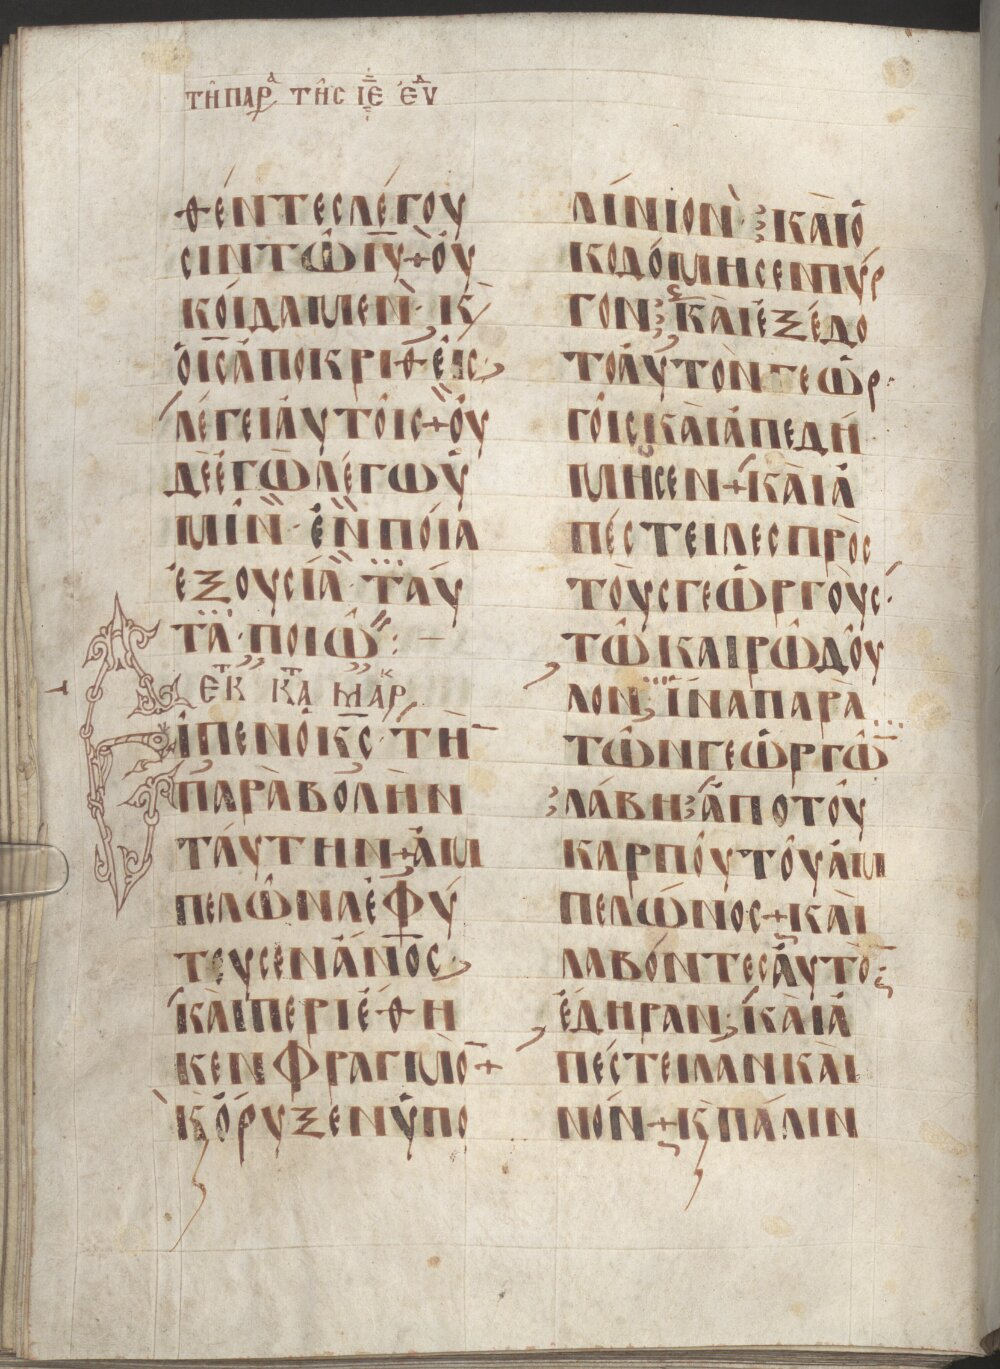 τῇ παρ^α τῆς ιε ἑβδ
θέντες λέγου
σιν τῶ ιῦ + ὀυ
κ οίδαμεν · κ
ὁ ις ἀποκριθεὶς
λέγει ἀυτοῖς + ὀυ
δὲ ἐγὼ λέγω ὑ
μῖν · ἐν ποία
ἐξουσία · ταύ
τα · ποιῶ : –
ΕΚ ΤΚΑ ΜΑΡ
Εἶπεν ὁ κς · τὴν
παραβολὴν
ταύτην + ἀμ
πελῶνα ἐφύ
τευσεν ἄνος
καὶ περιέθη
κεν φραγμὸν +
κ ὄρυξεν ὑπο
λίνιον · καὶ ὠ
κοδόμησεν πύρ
γον · καὶ ἐξέδο
το ἀυτὸν γεωρ
γοῖς καὶ ἀπεδή
μησεν + καὶ ἀ
πέστειλες πρὸς
τοὺς γεωργοὺς ·
τῶ καιρῶ δοῦ
λον · ἵνα παρὰ
τῶν γεωργῶν
λάβη ἀπο τοῦ
καρποῦ τοῦ ἀμ
πελῶνος + καὶ
λαβόντες ἀυτὸν
ἔδηραν · καὶ ἀ
πέστειλαν και
νόν + κ πάλιν